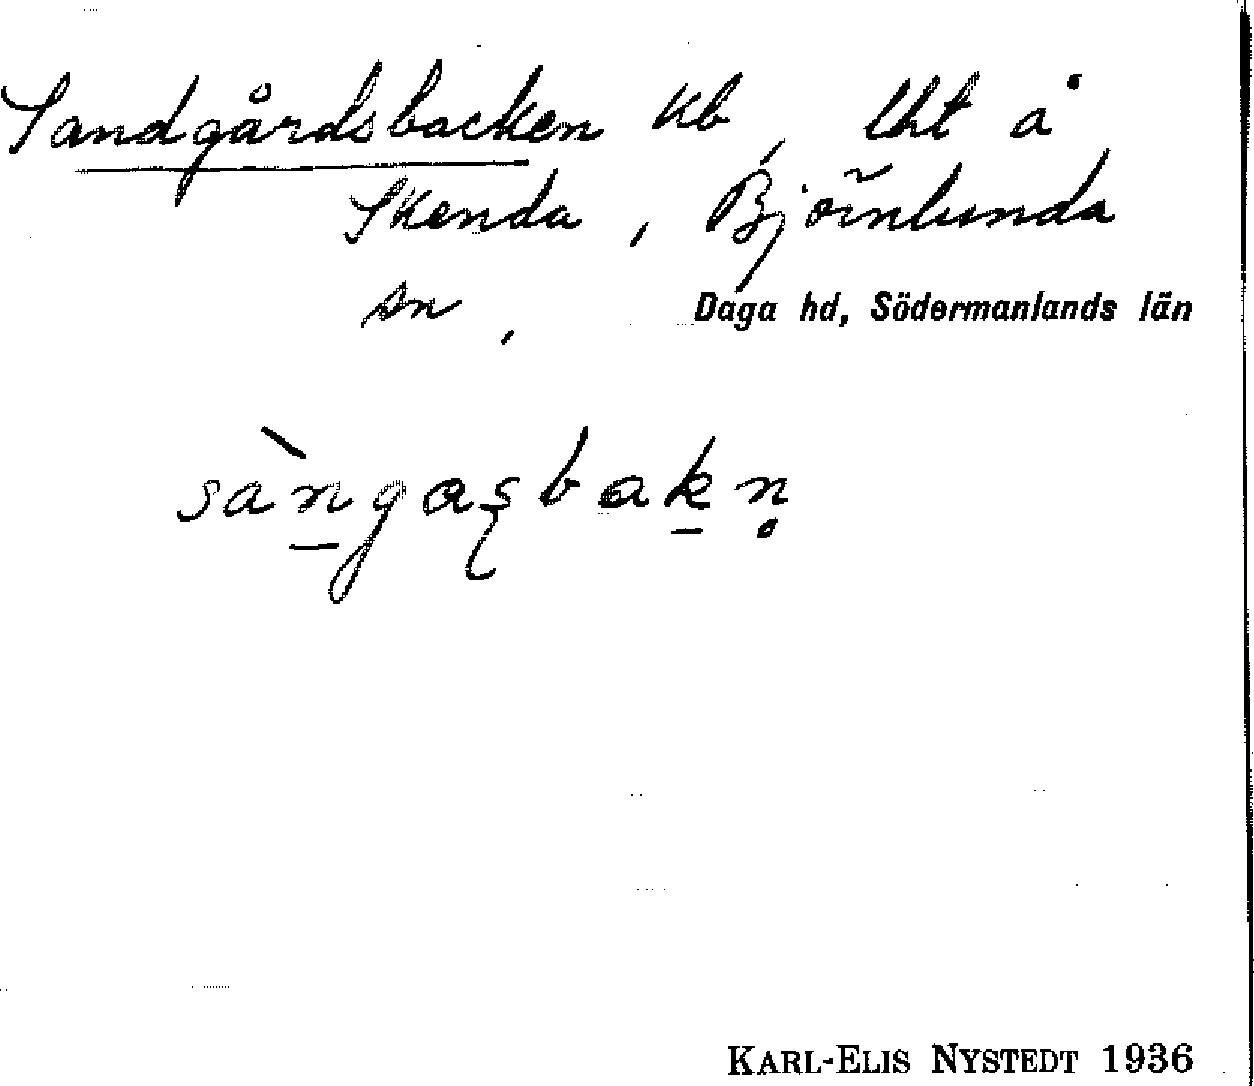 Sandgårdsbacken kb, lht å
Skenda, Björnlunda
sn, Daga hd, Södermanlands län
sàn̠gasbak̠ṇ
KARL-ELIS NYSTEDT 1936